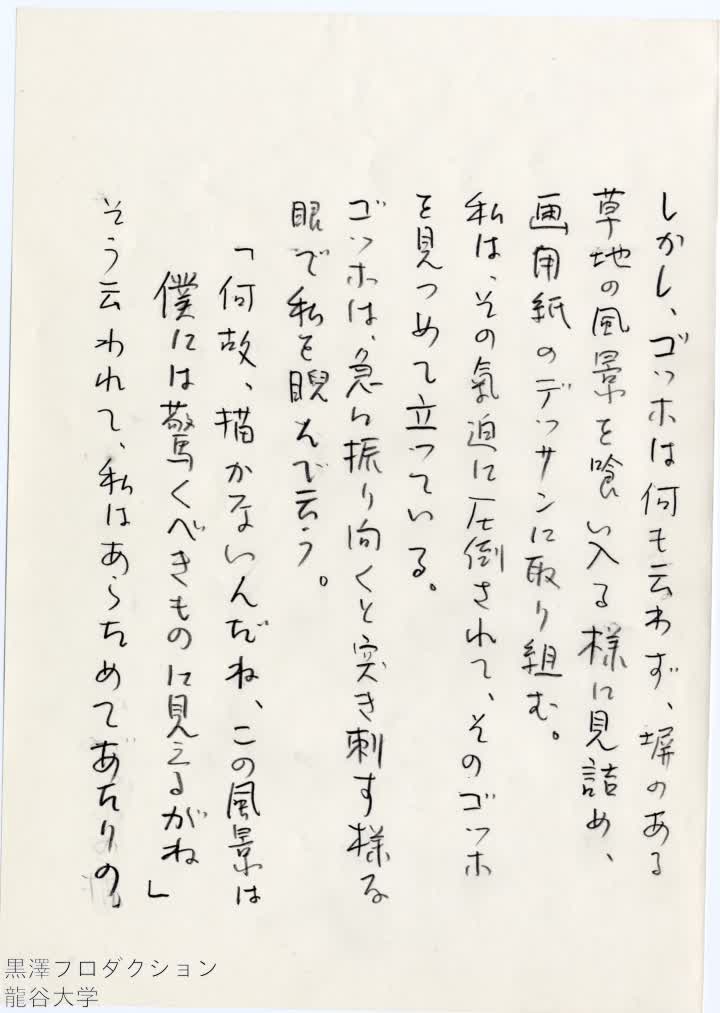 しかし、ゴッホは何も云わず、塀のある
草地の風景を喰い入る様に見詰め、
画用紙のデッサンに取り組む。
私は、その氣迫に圧倒されて、そのゴッホ
を見つめて立っている。
ゴッホは、急に振り向くと突き刺す様な
眼で私を睨んで云う。
「何故、描かないんだね、この風景は
僕には驚くべきものに見えるがね」
そう云われて、私はあらためてあたりの
黒澤プロダクション
龍谷大学